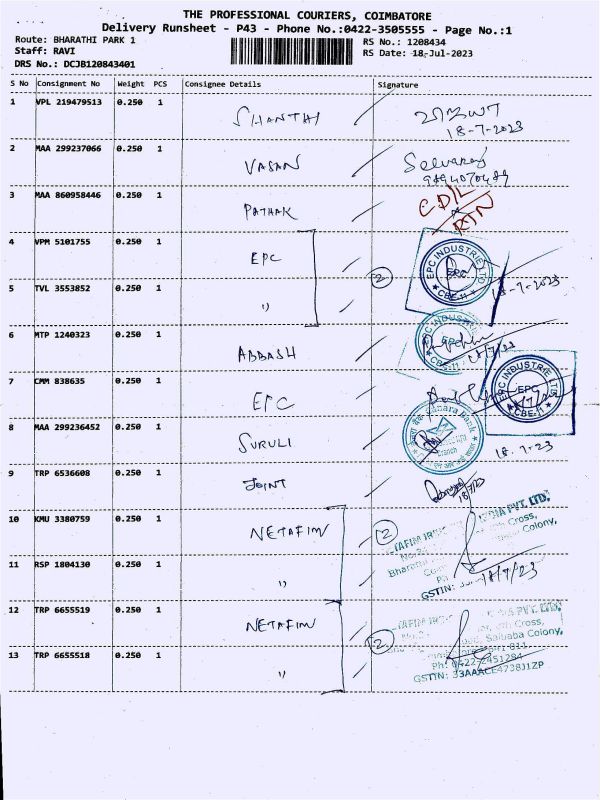 THE PROFESSIONAL COURIERS, COIMBATORE
Delivery Runsheet - P43 - Phone No.:0422-3505555 - Page No.:1
Route: BHARATHI PARK 1
RS No.: 1208434
Staff: RAVI
RS Date: 18-Jul-2023
DRS No.: DCJB120843401
S No Consignment No Weight PCS Consignee Details Signature
1 VPL 219479513 0.250 1 SHANTHI
18-7-2023
2 MAA 299237066 0.250 1 VASAN Selvaraj
3 MAA 860958446 0.250 1 PATHAK CD/L
RTN
4 VPM 5101755 0.250 1 EPC 2 EPC INDUSTRIE LTD
EPC
CBE-11
5 TVL 3553852 0.250 1 " 18-7-2023
6 MTP 1240323 0.250 1 ABBASH EPC INDUSTRIE LTD
CBE-11 18/7/23
7 CMM 838635 0.250 1 EPC EPC INDUSTRIE LTD
EPC
CBE-11
8 MAA 299236452 0.250 1 SURULI Canara Bank
Branch 18.7.2023
9 TRP 6536608 0.250 1 JOINT 18/7/23
10 KMU 3380759 0.250 1 NETAFIM 2 INDIA PVT. LTD.
Cross,
Colony,
11 RSP 1804130 0.250 1 " GSTIN: 18/7/23
12 TRP 6655519 0.250 1 NETAFIM 2 PVT. LTD.
Cross,
Saibaba Colony,
13 TRP 6655518 0.250 1 " Ph: 0422-2451284
GSTIN: 33AAACE4738J1ZP